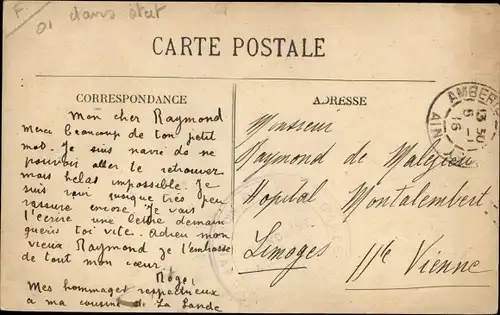 01 dans état
CARTE POSTALE
CORRESPONDANCE
Mon cher Raymond
Merci beaucoup de ton petit
mot. Je suis navré de ne
pouvoir aller te retrouver
mais helas impossible. Je
suis ravi quoique très peu
rassuré encore. Je vais
t'ecrire une lettre demain
gueris toi vite. Adieu mon
vieux Raymond je t'embrasse
de tout mon cœur.
Mes hommages respectueux
à ma cousine de La Lande
ADRESSE
Monsieur
Raymond de
Hopital Montalembert
Limoges Hte Vienne
AMBER
13 30
5 -1
16
AIN